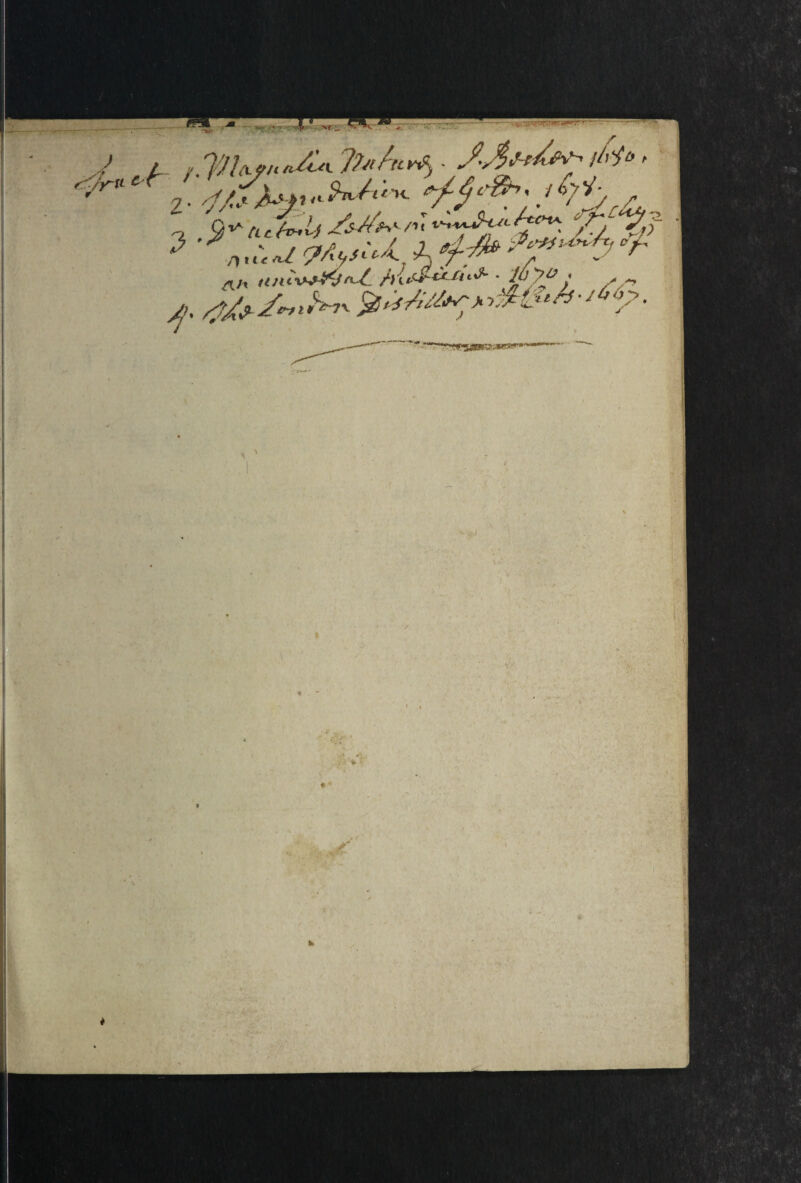 Tract 1. Magnalia Naturæ. J. Becher 1680.
2. The Degradation of Gold. 1678.
3. Dr Actons Letter in vindication of Chy=
mical Physick, & of the Possibity of
an universal Medicine. 1670.
4. The London Distiller, with Cuts. 1667.